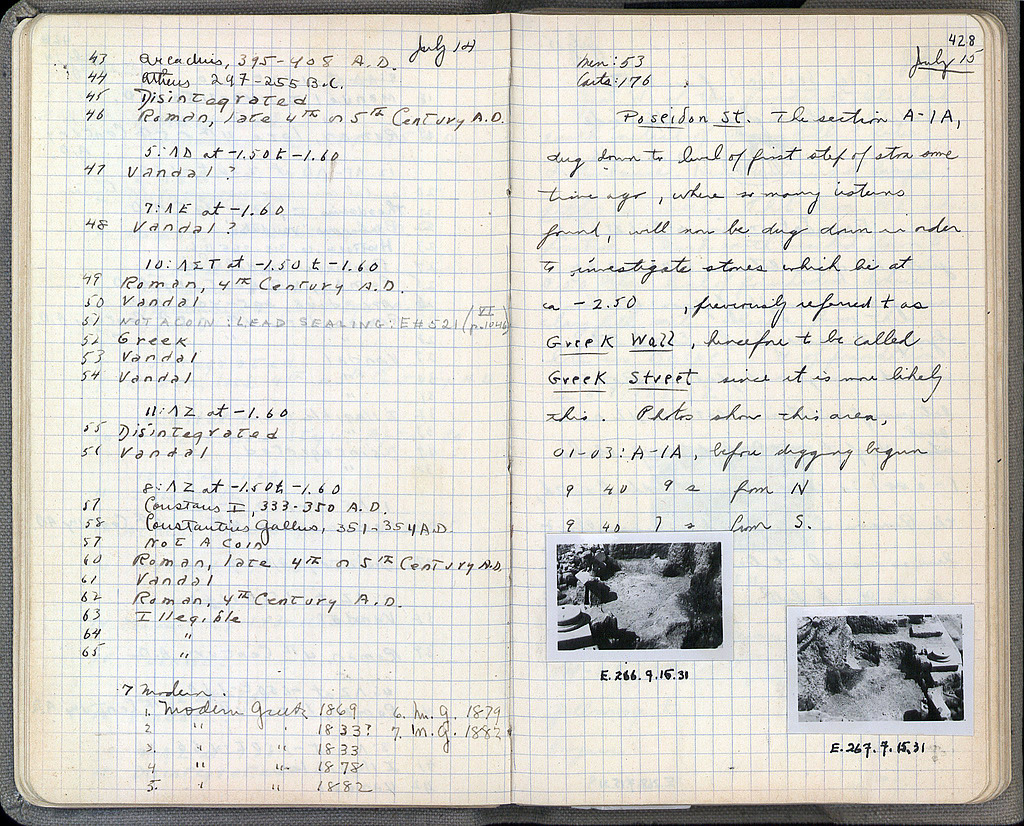 July 14
43 Arcadius, 395-408 A.D.
44 Athens 297-255 B.C.
45 Disintegrated
46 Roman, late 4TH or 5TH Century A.D.
5:ΛD at -1.50 to -1.60
47 Vandal ?
7:ΛE at -1.60
48 Vandal ?
10:ΛΣT at -1.50 to -1.60
49 Roman, 4TH Century A.D.
50 Vandal
51 NOT A COIN: LEAD SEALING: EH521 (VI p.1046)
52 Greek
53 Vandal
54 Vandal
11:ΛZ at -1.60
55 Disintegrated
56 Vandal
8:ΛZ at -1.50 to -1.60
57 Constans I, 333-350 A.D.
58 Constantius Gallus, 351-354 A.D.
59 Not A Coin
60 Roman, late 4TH or 5TH Century A.D.
61 Vandal
62 Roman, 4TH Century A.D.
63 Illegible
64 "
65 "
7 Modern.
1. Modern Greek 1869 6. M.G. 1879
2 " " 1833? 7. M.G. 1882
3. " " 1833
4 " " 1878
5. " " 1882
428
July 15
Men: 53
Carts: 176
Poseidon St. The section A-1A,
dug down to level of first step of stoa some
time ago, where so many cisterns
found, will now be dug down in order
to investigate stones which lie at
ca -2.50 , previously referred to as
Greek Wall, henceforth to be called
Greek Street since it is more likely
this. Photos show this area,
01-03: A-1A, before digging begun
9 40 9 2 from N
9 40 7 2 from S.
E.266.9.15.31
E.267.7.15.31